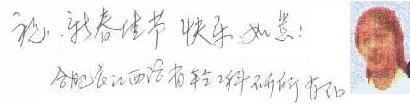 祝 新春佳节 快乐 如意!
合肥长江西路省轻工科研所